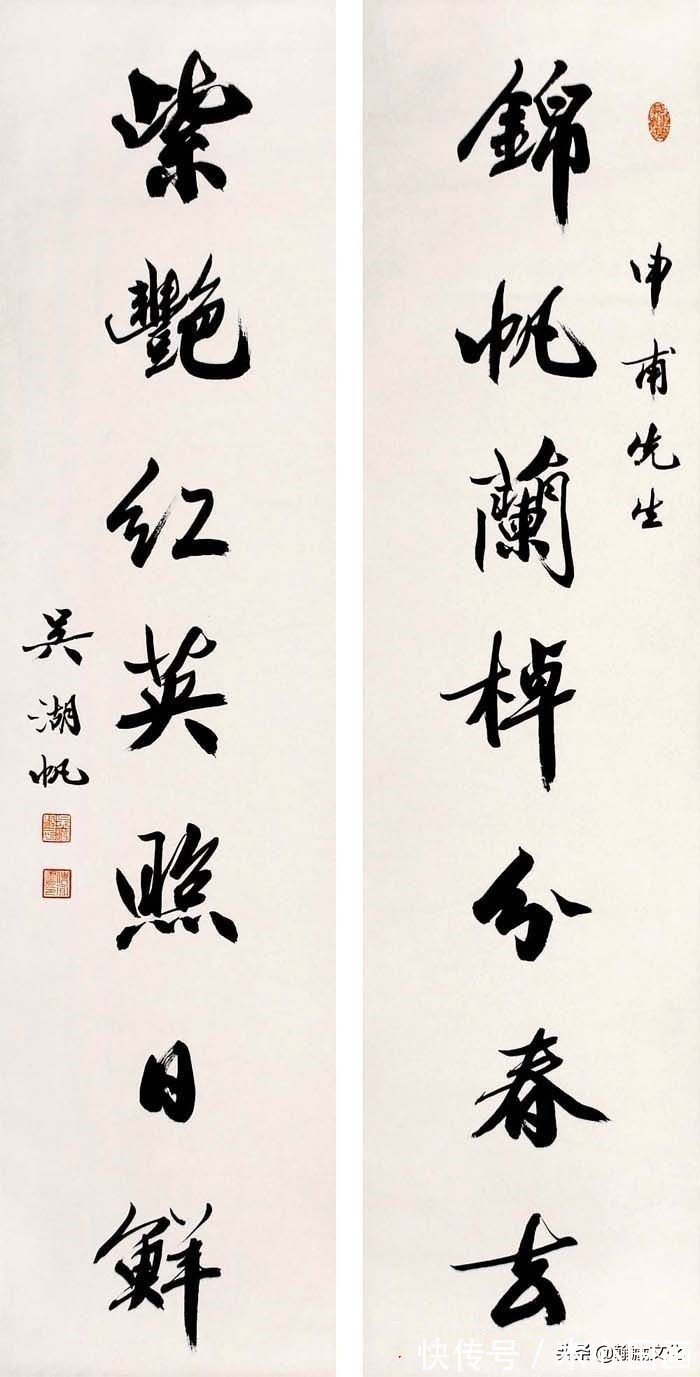 申甫先生
錦帆蘭棹分春去
紫艷紅英照日鮮
吳湖帆
快传号
头条@翰墨文化